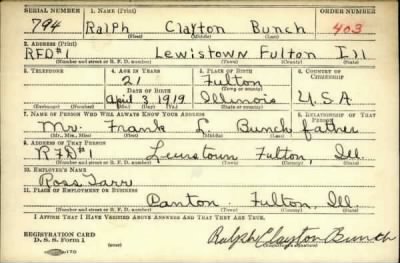 SERIAL NUMBER 1. NAME (Print) ORDER NUMBER
794 Ralph Clayton Bunch 403
(First) (Middle) (Last)
2. ADDRESS (Print)
RFD#1 Lewistown Fulton Ill
(Number and street or R. F. D. number) (Town) (County) (State)
3. TELEPHONE 4. AGE IN YEARS 5. PLACE OF BIRTH 6. COUNTRY OF CITIZENSHIP
21 Fulton
(Town or county)
DATE OF BIRTH
April 3, 1919 Illinois U.S.A.
(Exchange) (Number) (Mo.) (Day) (Yr.) (State or country)
7. NAME OF PERSON WHO WILL ALWAYS KNOW YOUR ADDRESS 8. RELATIONSHIP OF THAT PERSON
Mr. Frank L Bunch father
(Mr., Mrs., Miss) (First) (Middle) (Last)
9. ADDRESS OF THAT PERSON
RFD#1 Lewistown Fulton, Ill.
(Number and street or R. F. D. number) (Town) (County) (State)
10. EMPLOYER'S NAME
Ross Tarr
11. PLACE OF EMPLOYMENT OR BUSINESS
Canton. Fulton, Ill.
(Number and street or R. F. D. number) (Town) (County) (State)
I AFFIRM THAT I HAVE VERIFIED ABOVE ANSWERS AND THAT THEY ARE TRUE.
REGISTRATION CARD
D. S. S. Form 1 Ralph Clayton Bunch
(Registrant's signature)